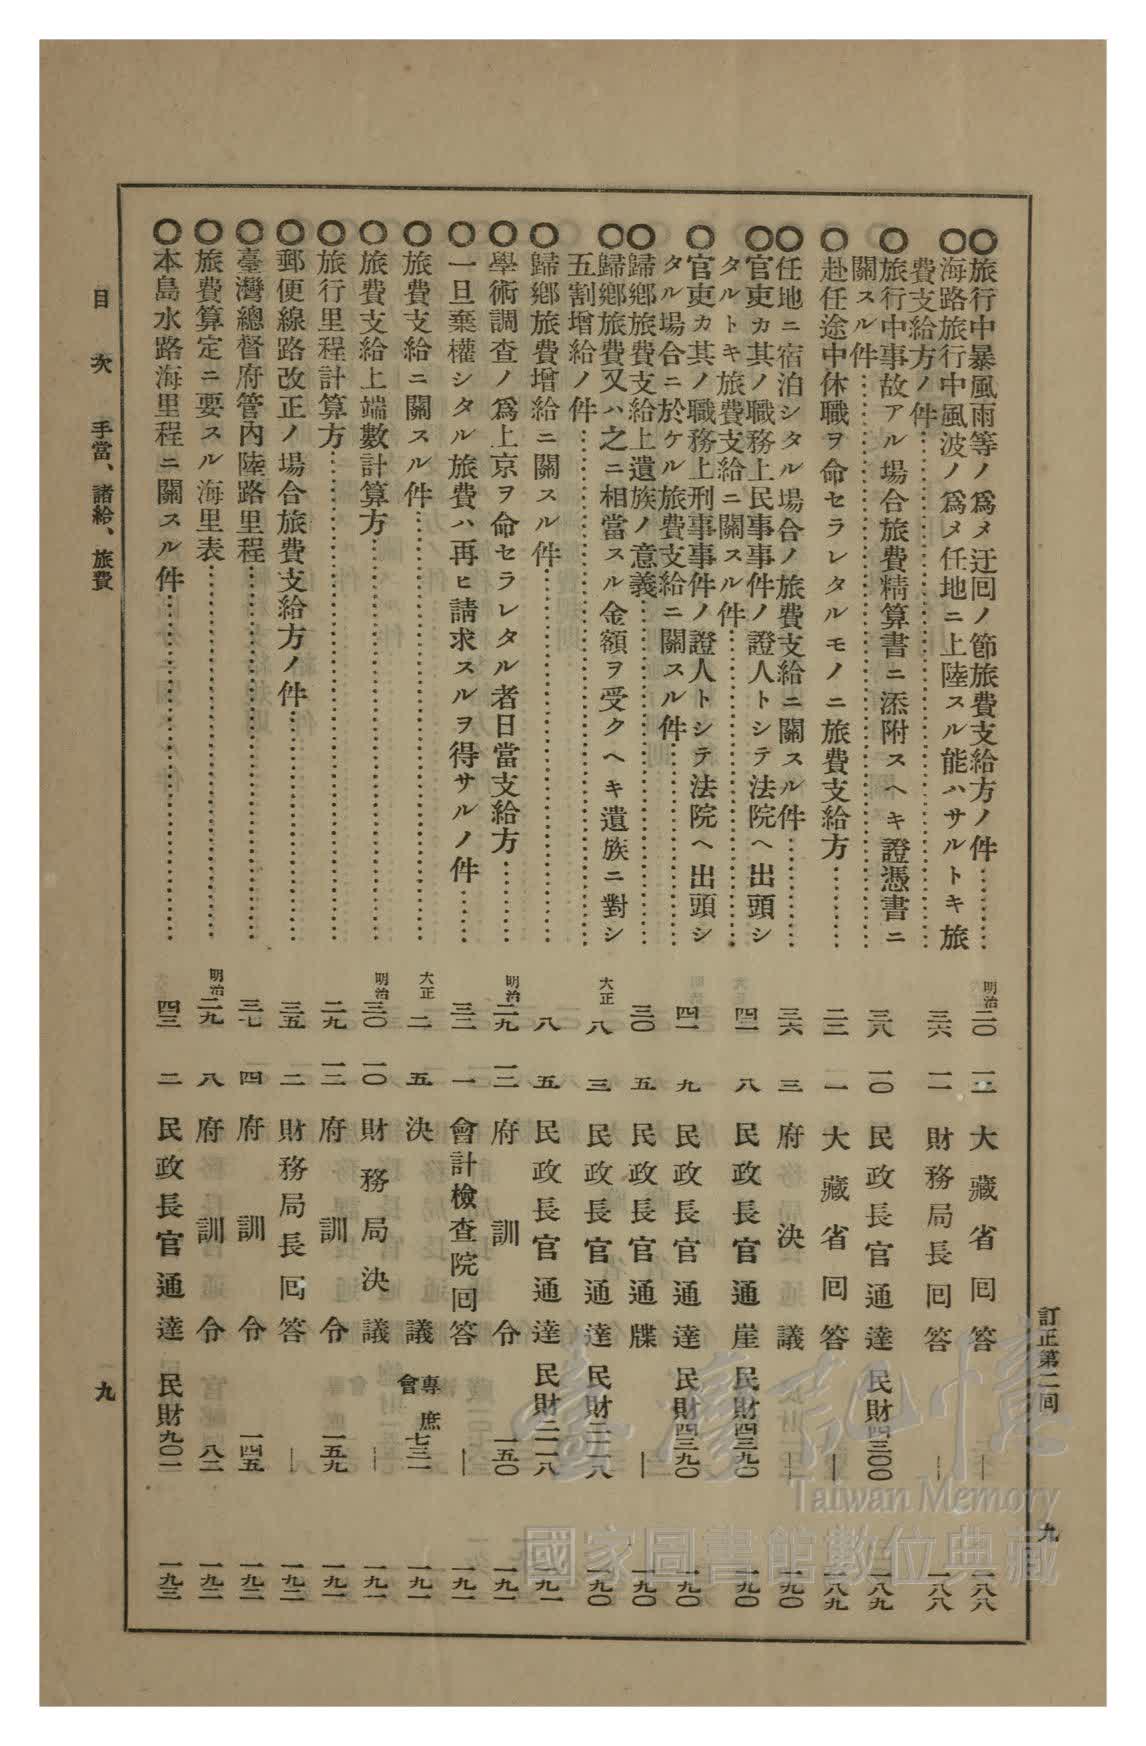 訂正第二回
九
○旅行中暴風雨等ノ爲メ迂回ノ節旅費支給方ノ件………… 明治二〇 一二 大藏省回答 ― 一八八
○海路旅行中風波ノ爲メ任地ニ上陸スル能ハサルトキ旅
費支給方ノ件………… 三六 一一 財務局長回答 ― 一八八
○旅行中事故アル場合旅費精算書ニ添附スヘキ證憑書ニ
關スル件………… 三八 一〇 民政長官通達 民財四三〇〇 一八九
○赴任途中休職ヲ命セラレタルモノニ旅費支給方………… 二三 一 大藏省回答 ― 一八九
○任地ニ宿泊シタル場合ノ旅費支給ニ關スル件………… 三六 三 府決議 ― 一九〇
○官吏カ其ノ職務上民事事件ノ證人トシテ法院ヘ出頭シ
タルトキ旅費支給ニ關スル件………… 四二 八 民政長官通崖 民財四三九〇 一九〇
○官吏カ其ノ職務上刑事事件ノ證人トシテ法院ヘ出頭シ
タル場合ニ於ケル旅費支給ニ關スル件………… 四一 九 民政長官通達 民財四三九〇 一九〇
○歸鄕旅費支給上遺族ノ意義………… 三〇 五 民政長官通牒 ― 一九〇
○歸鄕旅費又ハ之ニ相當スル金額ヲ受クヘキ遺族ニ對シ
五割增給ノ件………… 大正八 三 民政長官通達 民財二二一八 一九〇
○歸鄕旅費增給ニ關スル件………… 八 五 民政長官通達 民財二二一八 一九一
○學術調查ノ爲上京ヲ命セラレタル者日當支給方………… 明治二九 一二 府訓令 一五〇 一九一
○一旦棄權シタル旅費ハ再ヒ請求スルヲ得サルノ件………… 三二 一 會計檢查院回答 ― 一九一
○旅費支給ニ關スル件………… 大正二 五 決議 專庶會七三一 一九一
○旅費支給上端數計算方………… 明治三〇 一〇 財務局決議 ― 一九一
○旅行里程計算方………… 二九 一二 府訓令 一五九 一九一
○郵便線路改正ノ場合旅費支給方ノ件………… 三五 二 財務局長回答 ― 一九二
○臺灣總督府管內陸路里程………… 三七 四 府訓令 一四五 一九二
○旅費算定ニ要スル海里表………… 明治二九 八 府訓令 八二 一九二
○本島水路海里程ニ關スル件………… 四三 二 民政長官通達 民財九〇二 一九三
目次 手當、諸給、旅費
一九
臺灣記憶
Taiwan Memory
國家圖書館數位典藏